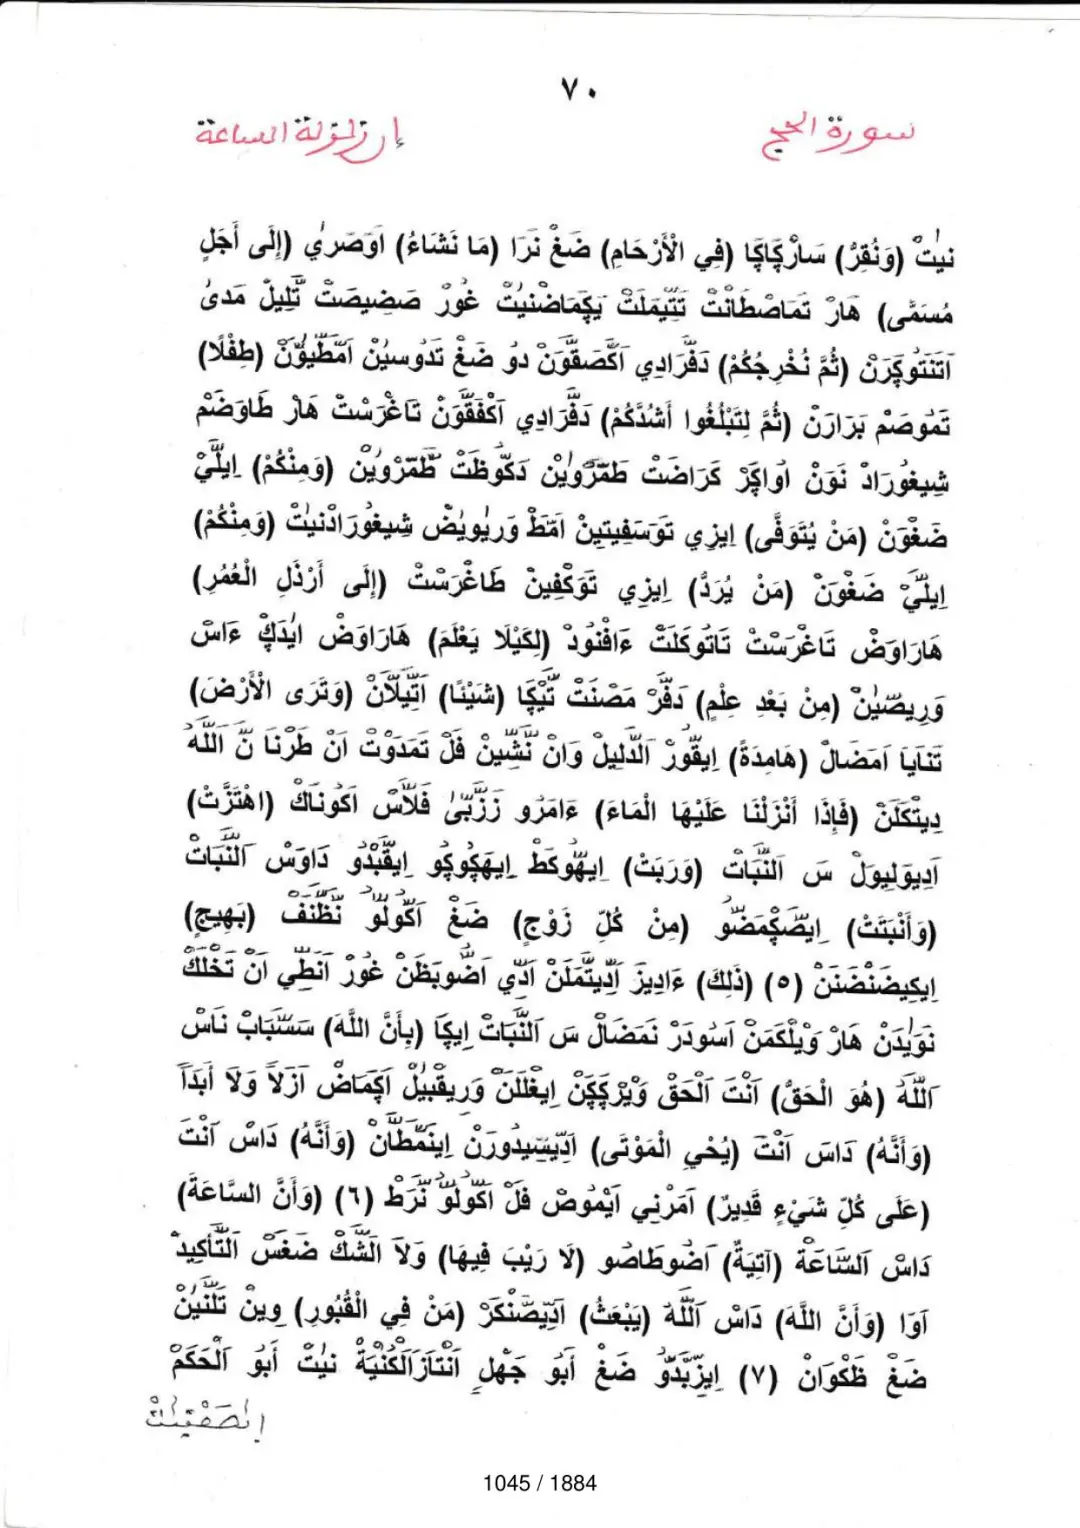 ٧٠
سورة الحج
إن زلزلة الساعة
نيتْ (وَنُقِرُّ) سَارْكَاكَا (فِي الْأَرْحَامِ) ضَغْ نَرَا (مَا نَشَاءُ) اَوَصَرِي (إِلَى أَجَلٍ
مُسَمًّى) هَارْ تَمَاصْطَانْتْ تَتِّيمَلَتْ يَكِمَاضْنِيتْ غُورْ صَضِيصَتْ تَّلِيلْ مَدىٰ
اَتَنْتُوكَرَنْ (ثُمَّ نُخْرِجُكُمْ) دَفَّرَادِي اَكَّصَقُّوَنْ دُو ضَغْ تَدُوسِينْ اَمْطَيُوَّنْ (طِفْلًا)
تَمُوصَمْ بَرَارَنْ (ثُمَّ لِتَبْلُغُوا أَشُدَّكُمْ) دَفَّرَادِي اَكْفَقُّوَنْ تَاغْرَسْتْ هَارْ طَاوَضَمْ
شِيغُورَادْ نَوَنْ اَوَاكَرْ كَرَاضَتْ طَمَّرْوِينْ دَكُّوظَتْ طَّمَّرْوِينْ (وَمِنْكُمْ) اِيلَّيْ
ضَغْوَنْ (مَنْ يُتَوَفَّى) اِيزِي تَوَسَفِيتِينْ اَمَّطْ وَرِيوِيضْ شِيغُورَادْنِيتْ (وَمِنْكُمْ)
اِيلَّيْ ضَغْوَنْ (مَنْ يُرَدُّ) اِيزِي تَوَكْفِينْ طَاغْرَسْتْ (إِلَى أَرْذَلِ الْعُمُرِ)
هَارَاوَضْ تَاغْرَسْتْ تَاتُوكَلَتْ ءَافْنُودْ (لِكَيْلَا يَعْلَمَ) هَارَاوَضْ اَيْدَكْ ءَاسْ
وَرِيصِّينْ (مِنْ بَعْدِ عِلْمٍ) دَفَّرْ مَصْنَتْ تَّيكَا (شَيْئًا) اَتِّيلَانْ (وَتَرَى الْأَرْضَ)
تَنَايَا اَمَضَالْ (هَامِدَةً) اِيقُّورْ الدَّلِيلْ وَانْ نَّشِّينْ فَلْ تَمَدَوْتْ اَنْ طَرْنَا نَّ اللَّهُ
دِيتْكَلَنْ (فَإِذَا أَنْزَلْنَا عَلَيْهَا الْمَاءَ) ءَامَرُو زَزَّبَّىٰ فَلَّاسْ اَكُونَاكْ (اهْتَزَّتْ)
اَدِيوَلِيوَلْ سَ اَلنَّبَاتْ (وَرَبَتْ) اِيهُوكَطْ اِيهَكُوكُو اِيقَّبْدُو دَاوَسْ اَلنَّبَاتْ
(وَأَنْبَتَتْ) اِيصَّكْمَضُو (مِنْ كُلِّ زَوْجٍ) ضَغْ اَكُولُو نَّظَنَفْ (بَهِيجٍ)
اِيكِيضَنْضَنَنْ (٥) (ذَلِكَ) ءَادِيزْ اَدِّيتَّمَلَنْ اَدِّي اَضُّوبَظَنْ غُورْ اَنَطِّي اَنْ تَخْلَكْ
نَوِيدَنْ هَارْ وَيْلَكَمَنْ اَسُودَرْ نَمَضَالْ سَ اَلنَّبَاتْ اِيكَا (بِأَنَّ اللَّهَ) سَسَّبَابْ نَاسْ
اَللَّهُ (هُوَ الْحَقُّ) اَنْتَ اَلْحَقْ وَيْرَكَّكَنْ اِيغْلَلَنْ وَرِيقْبِيلْ اَكِمَاضْ اَزَلاً وَلاَ أَبَدَاً
(وَأَنَّهُ) دَاسَ اَنْتَ (يُحْيِ الْمَوْتَى) اَدِّيسِّيدُورَنْ اِينَمَّطَّانْ (وَأَنَّهُ) دَاسْ اَنْتَ
(عَلَى كُلِّ شَيْءٍ قَدِيرٌ) اَمَرْنِي اَيْمُوصْ فَلْ اَكُولُو نَّرَطْ (٦) (وَأَنَّ السَّاعَةَ)
دَاسْ اَلسَّاعَةْ (آتِيَةٌ) اَضُوطَاصُو (لَا رَيْبَ فِيهَا) وَلاَ اَلشَّكْ ضَغَسْ اَلتَّأْكِيدْ
اَوَا (وَأَنَّ اللَّهَ) دَاسْ اَللَّهُ (يَبْعَثُ) اَدِّيصَّنْكَرْ (مَنْ فِي الْقُبُورِ) وِينْ تَلْنِينْ
ضَغْ ظَكْوَانْ (٧) اِيزَّبَدُّو ضَغْ أَبُو جَهْلٍ اَنْتَازَالْكُنْيَةْ نِيتْ أَبُو اَلْحَكَمْ
1045 / 1884